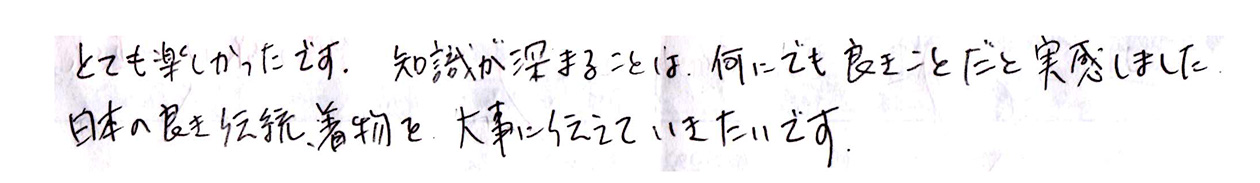 とても楽しかったです. 知識が深まることは. 何にでも良きことだと実感しました.
日本の良き伝統、着物を 大事に伝えていきたいです.